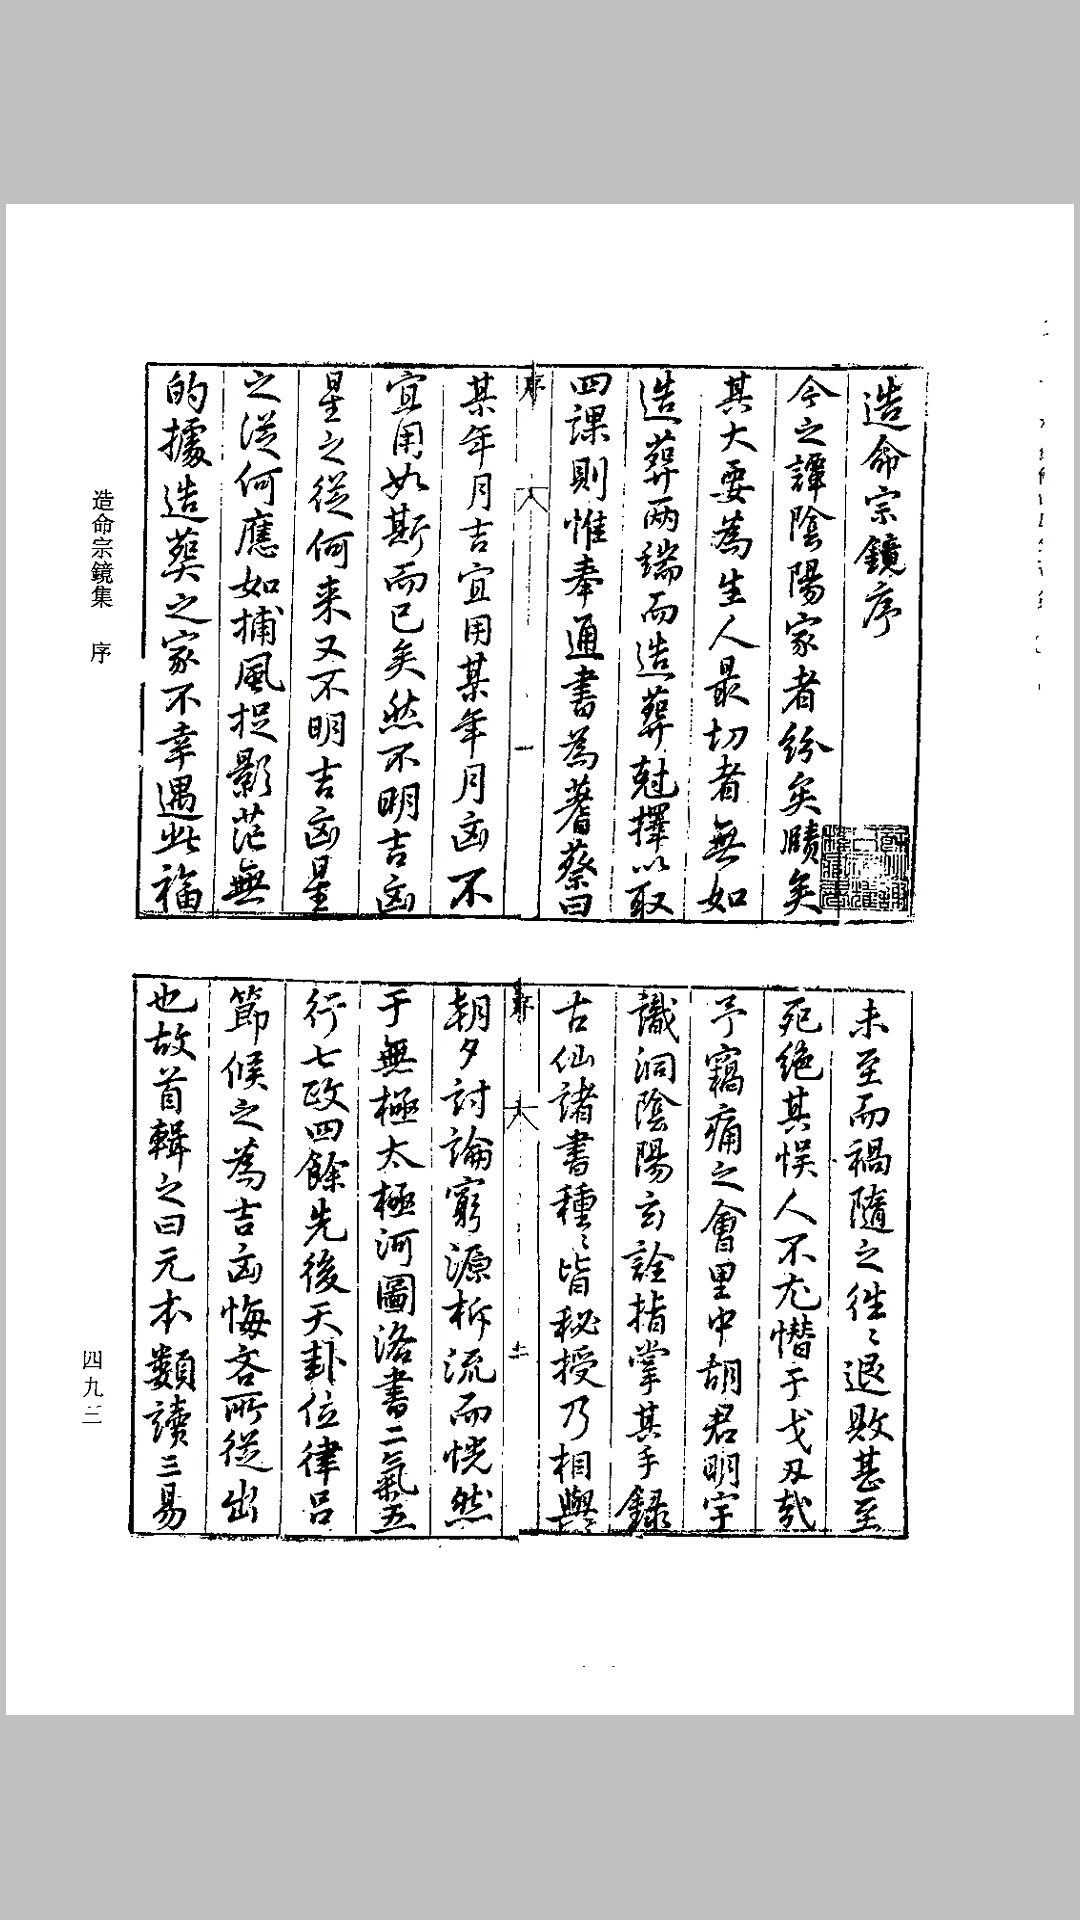 造命宗鏡序
今之譚陰陽家者紛矣賾矣
其大要為生人最切者無如
造葬兩端而造葬尅擇以取
四課則惟奉通書為蓍蔡曰
序
一
某年月吉宜用某年月凶不
宜用如斯而已矣然不明吉凶
星之從何来又不明吉凶星
之從何應如捕風捉影茫無
的據造葬之家不幸遇此福
未至而禍隨之徃〻退敗甚至
死絶其悞人不尤憯于戈刃哉
予竊痛之會里中胡君明宇
識洞陰陽玄詮指掌其手錄
古仙諸書種〻皆秘授乃相與
序
朝夕討論窮源柝流而恍然
于無極太極河圖洛書二氣五
行七政四餘先後天卦位律呂
節候之為吉凶悔吝所從出
也故首輯之曰元本類讀三易
造命宗鏡集 序
四九三